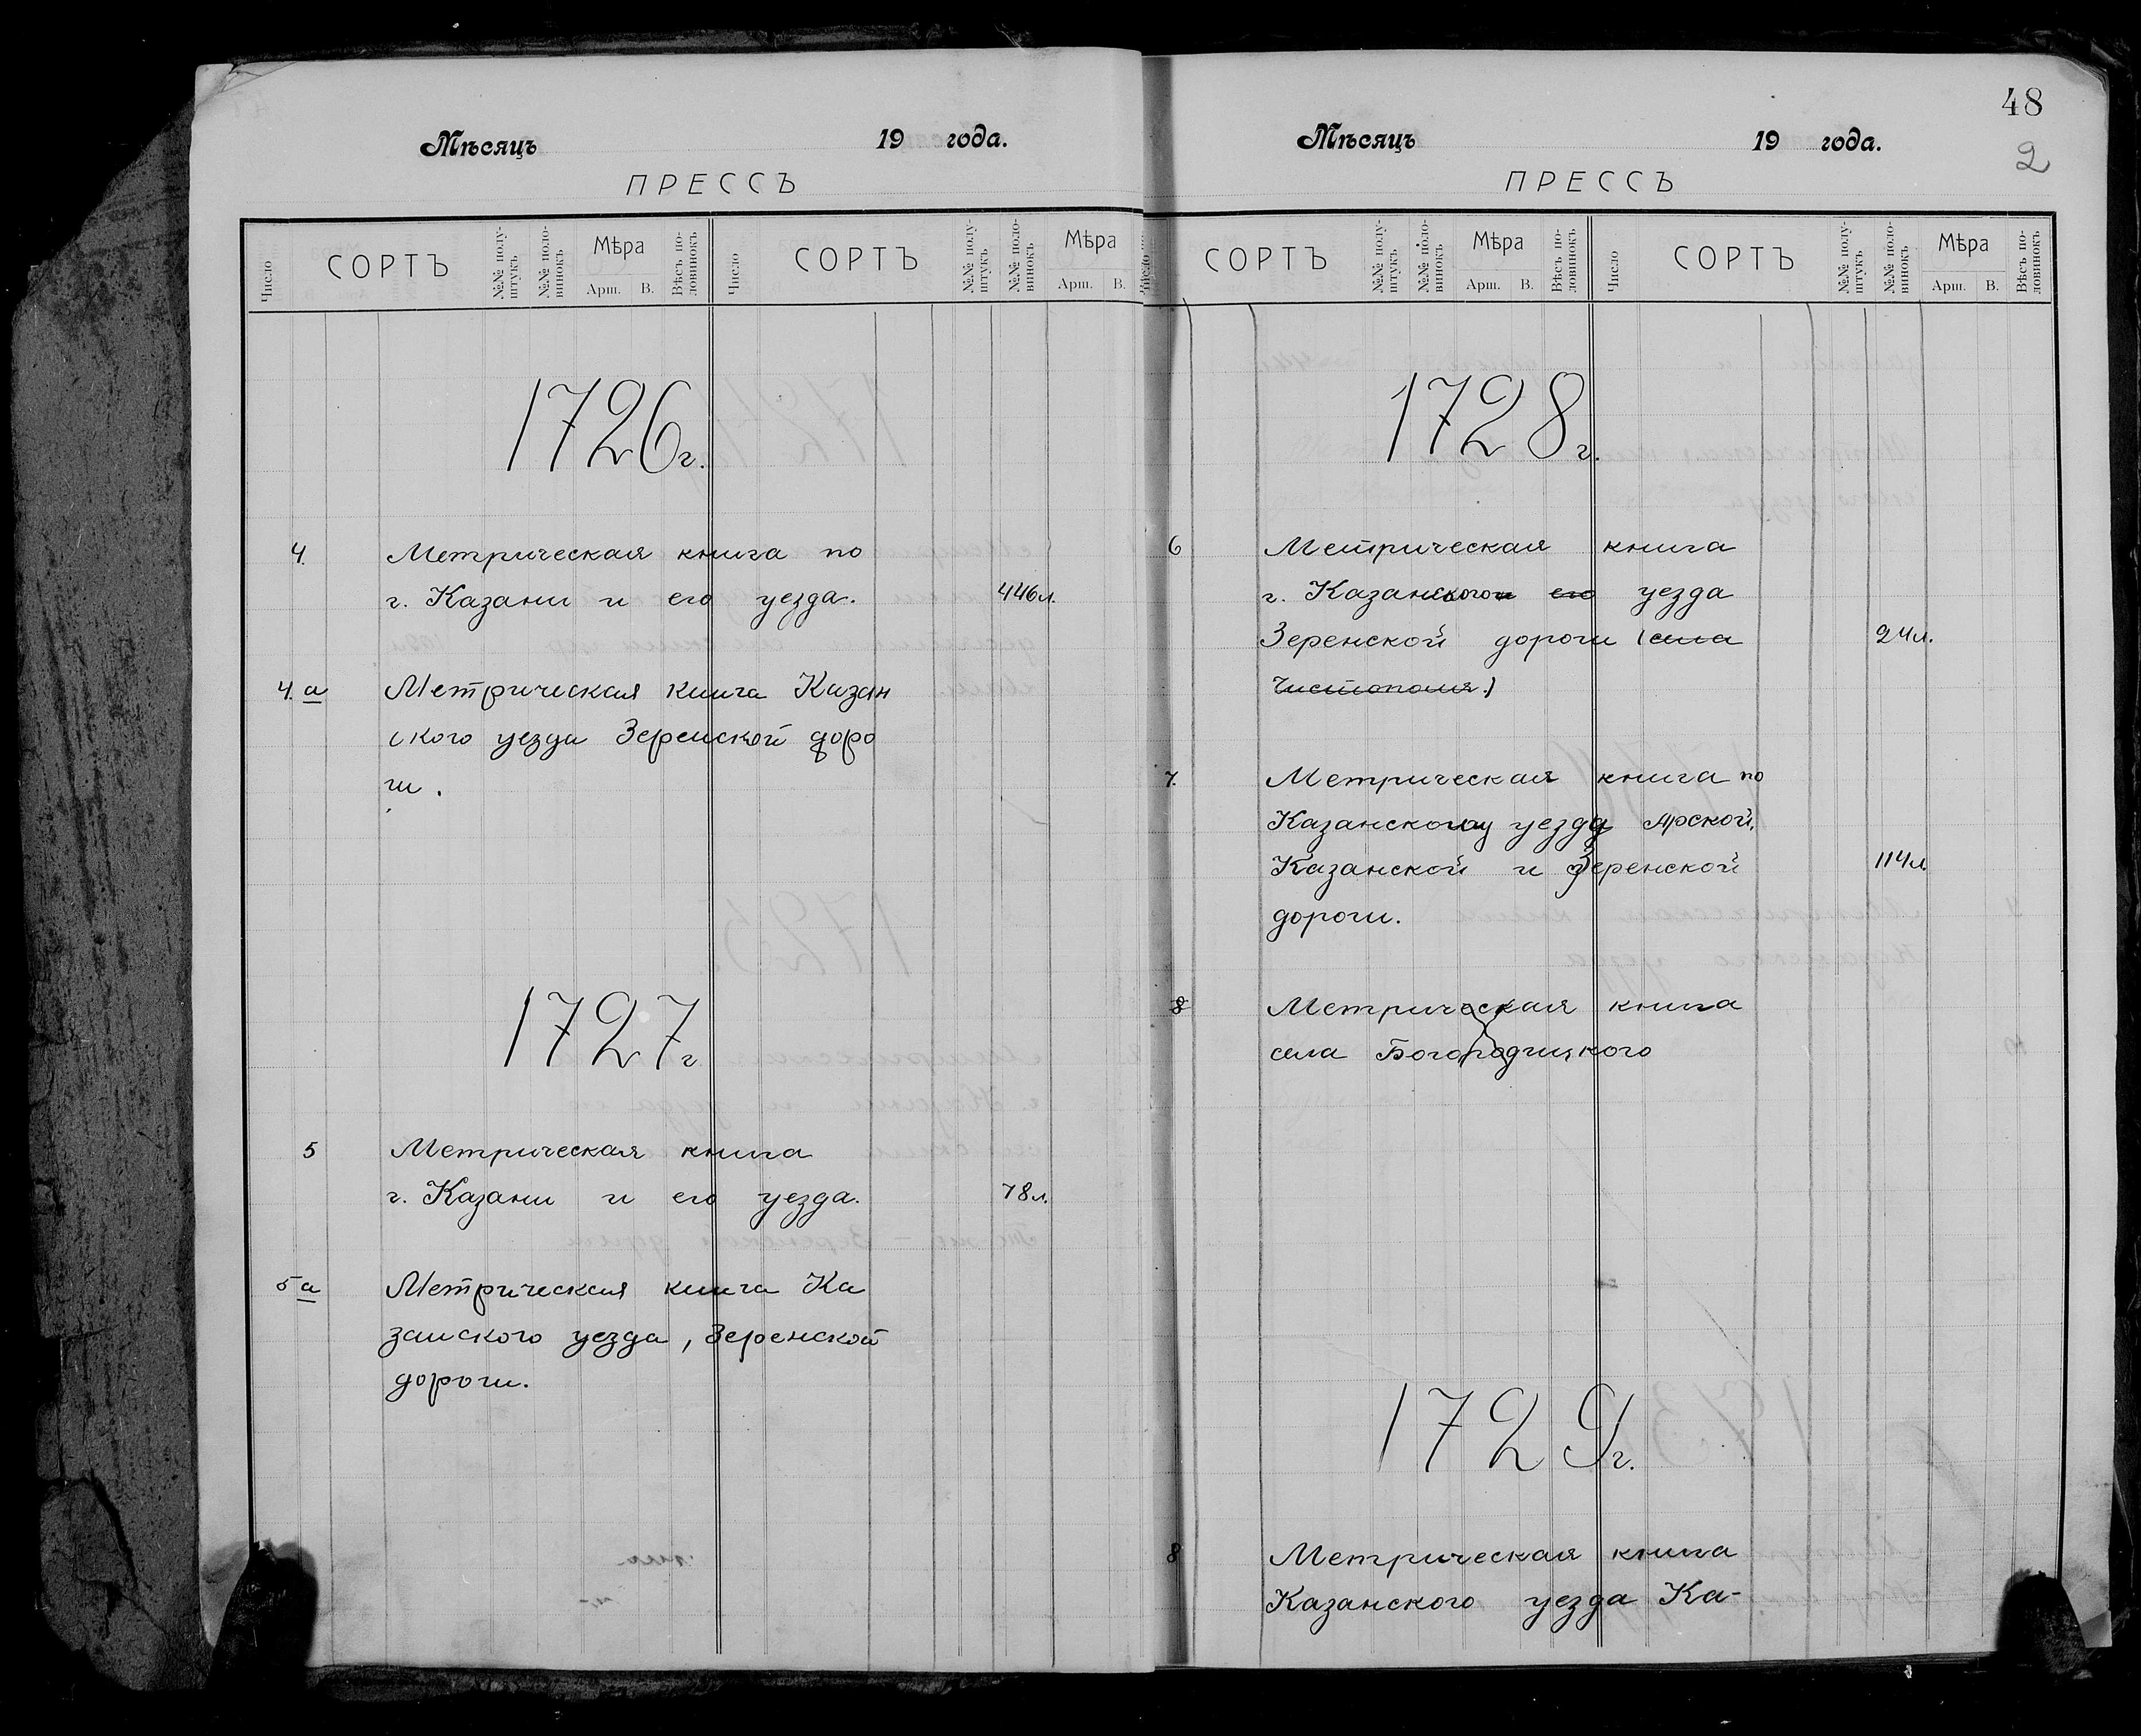 Мѣсяцъ 19 года.
ПРЕССЪ
Число СОРТЪ №№ полу-штукъ №№ поло-винокъ Мѣра Арш. В. Вѣсъ по-ловинокъ Число СОРТЪ №№ полу-штукъ №№ поло-винокъ Мѣра Арш. В.
1726 г.
4. Метрическая книга по
г. Казани и его уезда. 446 л.
4 а Метрическая книга Казан
ского уезда Зеренской доро
ги.
1727 г
5 Метрическая книга
г. Казани и его уезда. 78 л.
5 а Метрическая книга Ка
занского уезда, Зеренской
дороги.
48
Мѣсяцъ 19 года.
2
ПРЕССЪ
Число СОРТЪ №№ полу-штукъ №№ поло-винокъ Мѣра Арш. В. Вѣсъ по-ловинокъ Число СОРТЪ №№ полу-штукъ №№ поло-винокъ Мѣра Арш. В. Вѣсъ по-ловинокъ
1728 г.
6 Метрическая книга
г. Казанского и его уезда
Зеренской дороги (села 24 л.
Чистополя.)
7. Метрическая книга по
Казанскому уезду Арской,
Казанской и Зеренской 114 л
дороги.
8 Метрическая книга
села Богородицкого
1729 г.
8 Метрическая книга
Казанского уезда Ка-